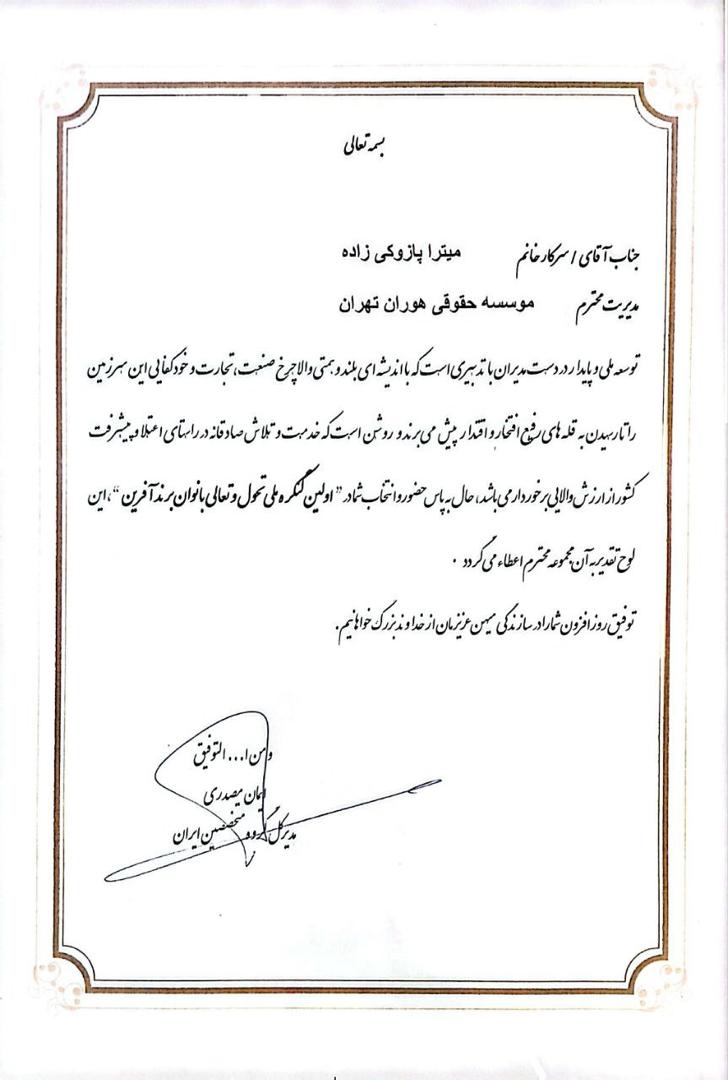 بسمه تعالی
جناب آقای / سرکار خانم میترا پازوکی زاده
مدیریت محترم موسسه حقوقی هوران تهران
توسعه ملی و پایدار در دست مدیران با تدبیری است که با اندیشه ای بلند و همتی والا چرخ صنعت، تجارت و خودکفایی این سرزمین
را تا رسیدن به قله های رفیع افتخار و اقتدار پیش می برند و روشن است که خدمت و تلاش صادقانه در راستای اعتلا و پیشرفت
کشور از ارزش والایی برخوردار می باشد، حال به پاس حضور و انتخاب شما در "اولین کنگره ملی تحول و تعالی بانوان برند آفرین"، این
لوح تقدیر به آن مجموعه محترم اعطاء می گردد .
توفیق روز افزون شما را در سازندگی میهن عزیزمان از خداوند بزرگ خواهانیم.
و من ا... التوفیق
ایمان مصدری
مدیر کل گروه متخصصین ایران